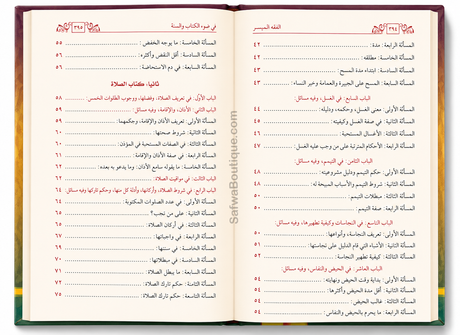 الفقه الميسر
٣٩٤
المسألة الرابعة: مدة: ٤٢
المسألة الخامسة: مبطلاته: ٤٣
المسألة السادسة: ابتداء مدة المسح: ٤٣
المسألة السابعة: المسح على الجبيرة والعمامة وخمر النساء: ٤٣
الباب السابع: في الغسل، وفيه مسائل:
المسألة الأولى: معنى الغسل، وحكمه، ودليله: ٤٤
المسألة الثانية: في صفة الغسل وكيفيته: ٤٥
المسألة الثالثة: الأغسال المستحبة: ٤٦
المسألة الرابعة: الأحكام المترتبة على من وجب عليه الغسل: ٤٧
الباب الثامن: في التيمم، وفيه مسائل:
المسألة الأولى: حكم التيمم ودليل مشروعيته: ٤٨
المسألة الثانية: شروط التيمم والأسباب المبيحة له: ٤٨
المسألة الثالثة: مبطلات التيمم: ٥٠
المسألة الرابعة: صفة التيمم: ٥٠
الباب التاسع: في النجاسات وكيفية تطهيرها، وفيه مسائل:
المسألة الأولى: تعريف النجاسة، وأنواعها: ٥٠
المسألة الثانية: الأشياء التي قام الدليل على نجاستها: ٥١
المسألة الثالثة: كيفية تطهير النجاسة: ٥٢
الباب العاشر: في الحيض والنفاس، وفيه مسائل:
المسألة الأولى: بداية وقت الحيض ونهايته: ٥٤
المسألة الثانية: أقل مدة الحيض وأكثرها: ٥٤
المسألة الثالثة: غالب الحيض: ٥٤
المسألة الرابعة: ما يحرم بالحيض والنفاس: ٥٤
في ضوء الكتاب والسنة
٣٩٥
المسألة الخامسة: ما يوجبه الحيض: ٥٥
المسألة السادسة: أقل النفاس وأكثره: ٥٦
المسألة السابعة: في دم الاستحاضة: ٥٦
ثانيا: كتاب الصلاة
الباب الأول: في تعريف الصلاة، وفضلها، ووجوب الصلوات الخمس ٥٨
الباب الثاني: الأذان، والإقامة، وفيه مسائل: ٥٩
المسألة الأولى: تعريف الأذان والإقامة، وحكمهما: ٥٩
المسألة الثانية: شروط صحتهما: ٦٠
المسألة الثالثة: في الصفات المستحبة في المؤذن: ٦٠
المسألة الرابعة: في صفة الأذان والإقامة: ٦١
المسألة الخامسة: ما يقوله سامع الأذان، وما يدعو به بعده: ٦٢
الباب الثالث: في مواقيت الصلاة ٦٢
الباب الرابع: في شروط الصلاة، وأركانها، وأدلة كل منها، وحكم تاركها وفيه مسائل: ٦٤
المسألة الأولى: في عدد الصلوات المكتوبة:
المسألة الثانية: على من تجب؟
المسألة الثالثة: في أركان الصلاة:
المسألة الرابعة: في واجباتها:
المسألة الخامسة: في سننها:
المسألة السادسة: في مبطلاتها: ٧٠
المسألة السابعة: ما يبطل الصلاة: ٧١
المسألة الثامنة: حكم تارك الصلاة: ٧٢
المسألة التاسعة: حكم تارك الصلاة: ٧٥
SafwaBoutique.com